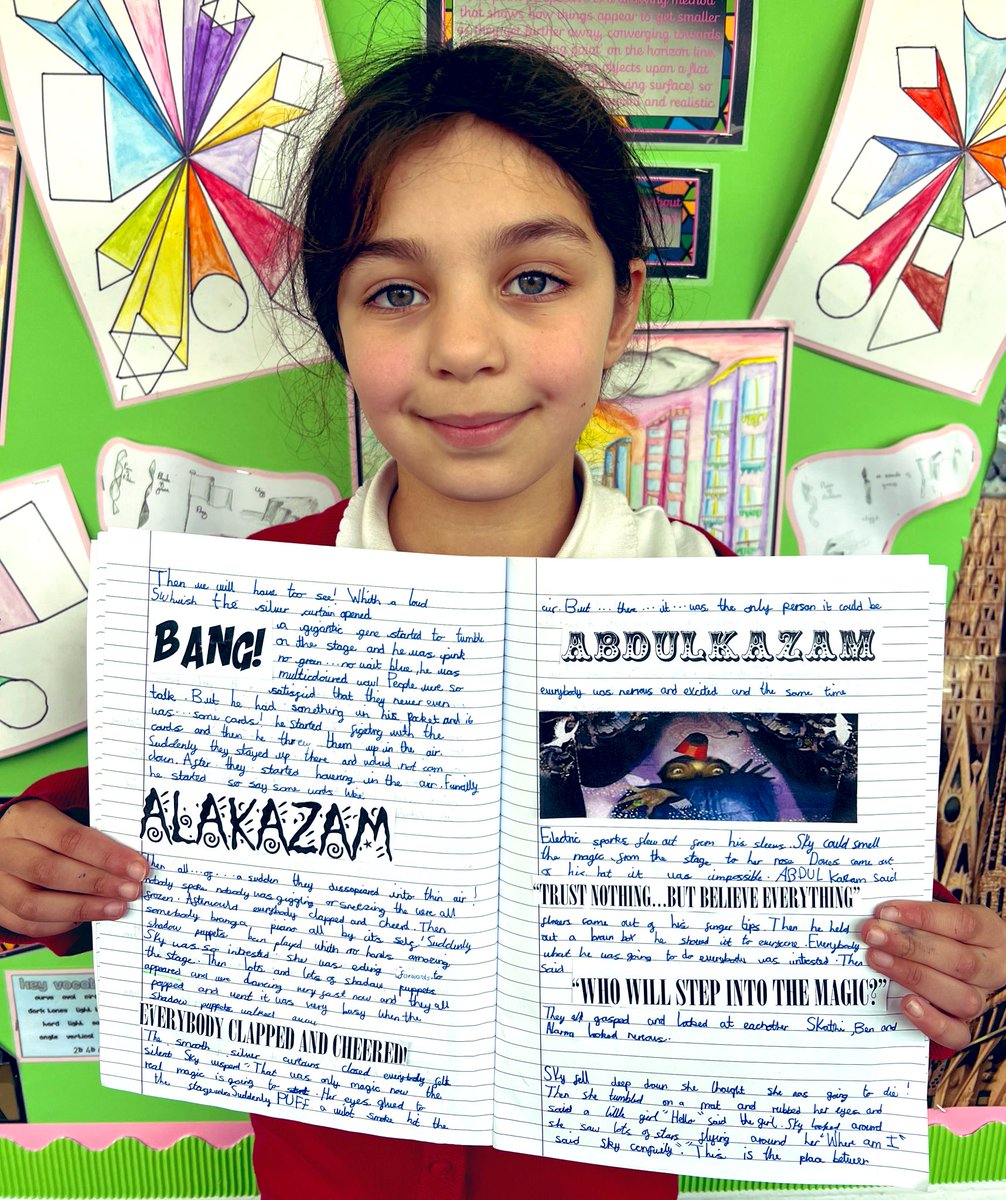 that shows how things appear to get smaller
as they get further away, converging towards
point on the horizon line.
objects upon a flat
surface) so
and realistic
about
key vocab
curve oval
dark tones light
hard light
angle vertical
2D 3D
Then we will have too see! Whith a loud
Swhuish the silver curtain opened
BANG!
a gigantic gene started to tumble
on the stage and he was pink
no green...no wait blue, he was
multicoloured wow! People were so
satisfied that they never even
talk. But he had something in his Pocket and it
was...some cards! he started figeling with the
cards and then he threw them up in the air.
Suddenly they stayed up there and would not com
down. After they started hovering in the air. Funally
he started so say some words like
ALAKAZAM
Then all...of...a sudden they dissopered into thin air!
nobody spoke nobody was giggling or sneezing the were all
frozen. Afterwould everybody clapped and cheerd. Then
somebody brang a piano all by its self! Suddenly
shadow puppets been played with no hands amazing
Sky was so intrested. She was eding forwards to
the stage. Then lots and lots of shadow puppets
appeared and were dancing very fast now and they all
popped and went it was very busy when the
shadow puppets walked away
EVERYBODY CLAPPED AND CHEERED!
The smooth silver curtains closed everybody fell
silent Sky wisperd "That was only magic now the
real magic is going to start. Her eyes glued to
the stage. Suddenly PUFF a violet smoke hit the
air. But...there...it...was the only person it could be
ABDULKAZAM
everybody was nervous and excited and the same time
Electric sparks flew out from his sleevs. Sky could smell
the magic from the stage to her nose Doves came out
of his hat it was impossible. ABDUL Kazam said
“TRUST NOTHING...BUT BELIEVE EVERYTHING”
flowers came out of his finger tips. Then he held
out a brain box he showed it to everyone. Everybody
what he was going to do everybody was intrested. Then
said
“WHO WILL STEP INTO THE MAGIC?”
They all gasped and looked at eachother Skathi, Ben and
looked nervous.
Sky fell deep down she thought she was going to die!
Then she tumbled on a mat and rubbed her eyes and
said a little girl "Hello" said the girl. Sky looked around
she saw lots of stars flying around her "Where am I"
said Sky confusily". "This is the place betwen